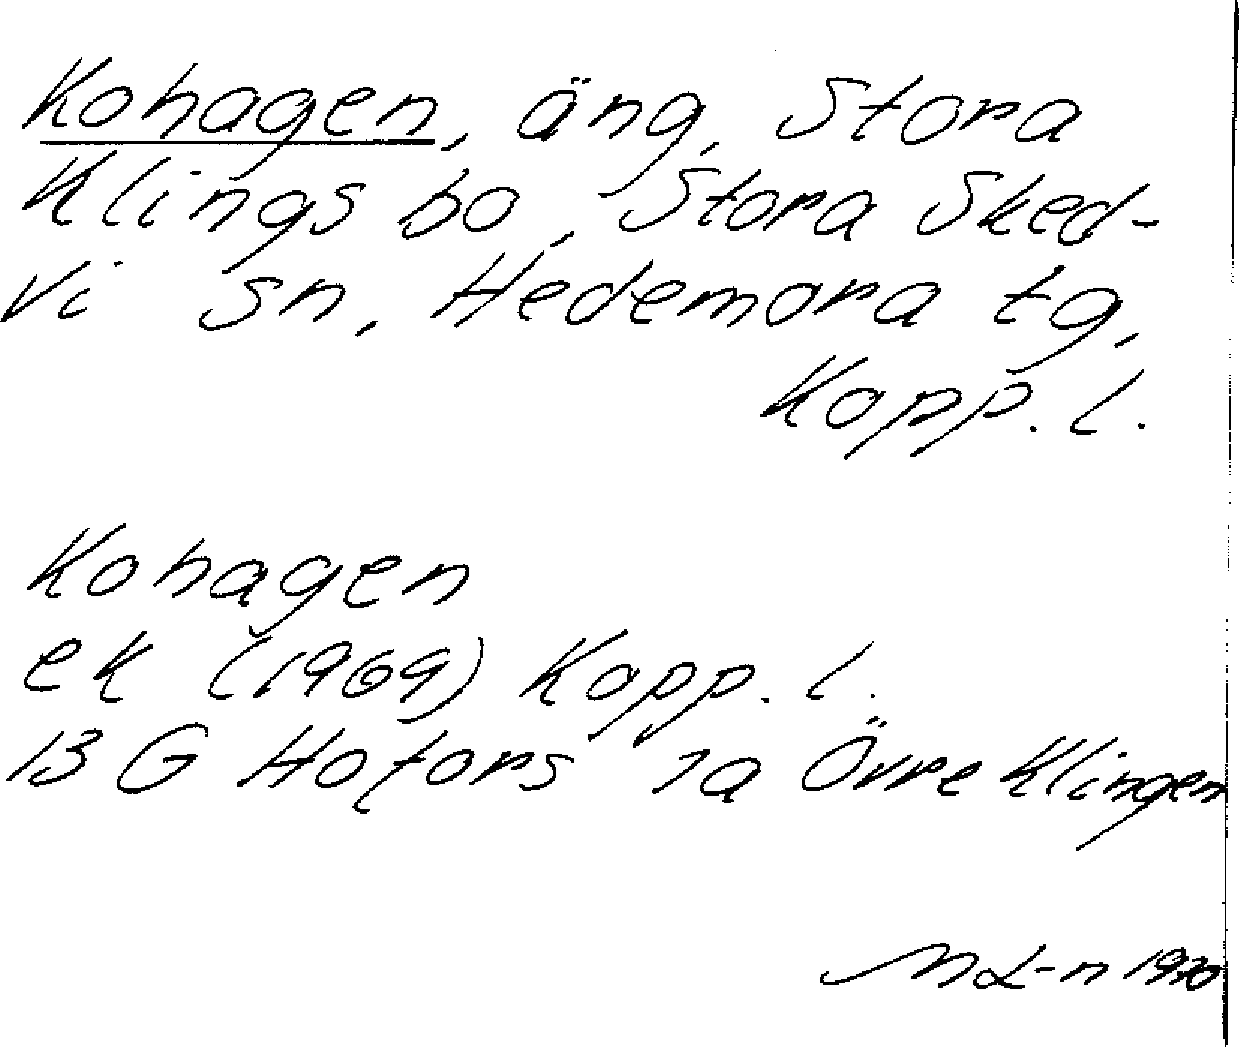 Kohagen, äng, Stora
Klingsbo, Stora Sked-
vi sn, Hedemora tg,
Kopp. l.
Kohagen
ek (1969) Kopp. l.
13 G Hofors 7a Övre Klingen
M L-n 1970